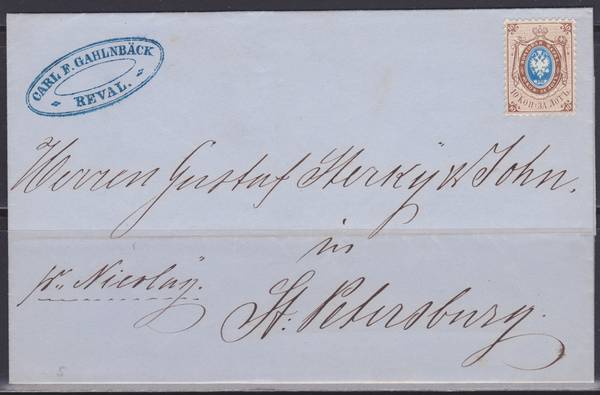 CARL F. GAHLNBÄCK
REVAL.
10 КОП. ЗА ЛОТЪ
Herren Gustaf Sterky & Sohn.
in
pr. Nicolay.
St. Petersburg.